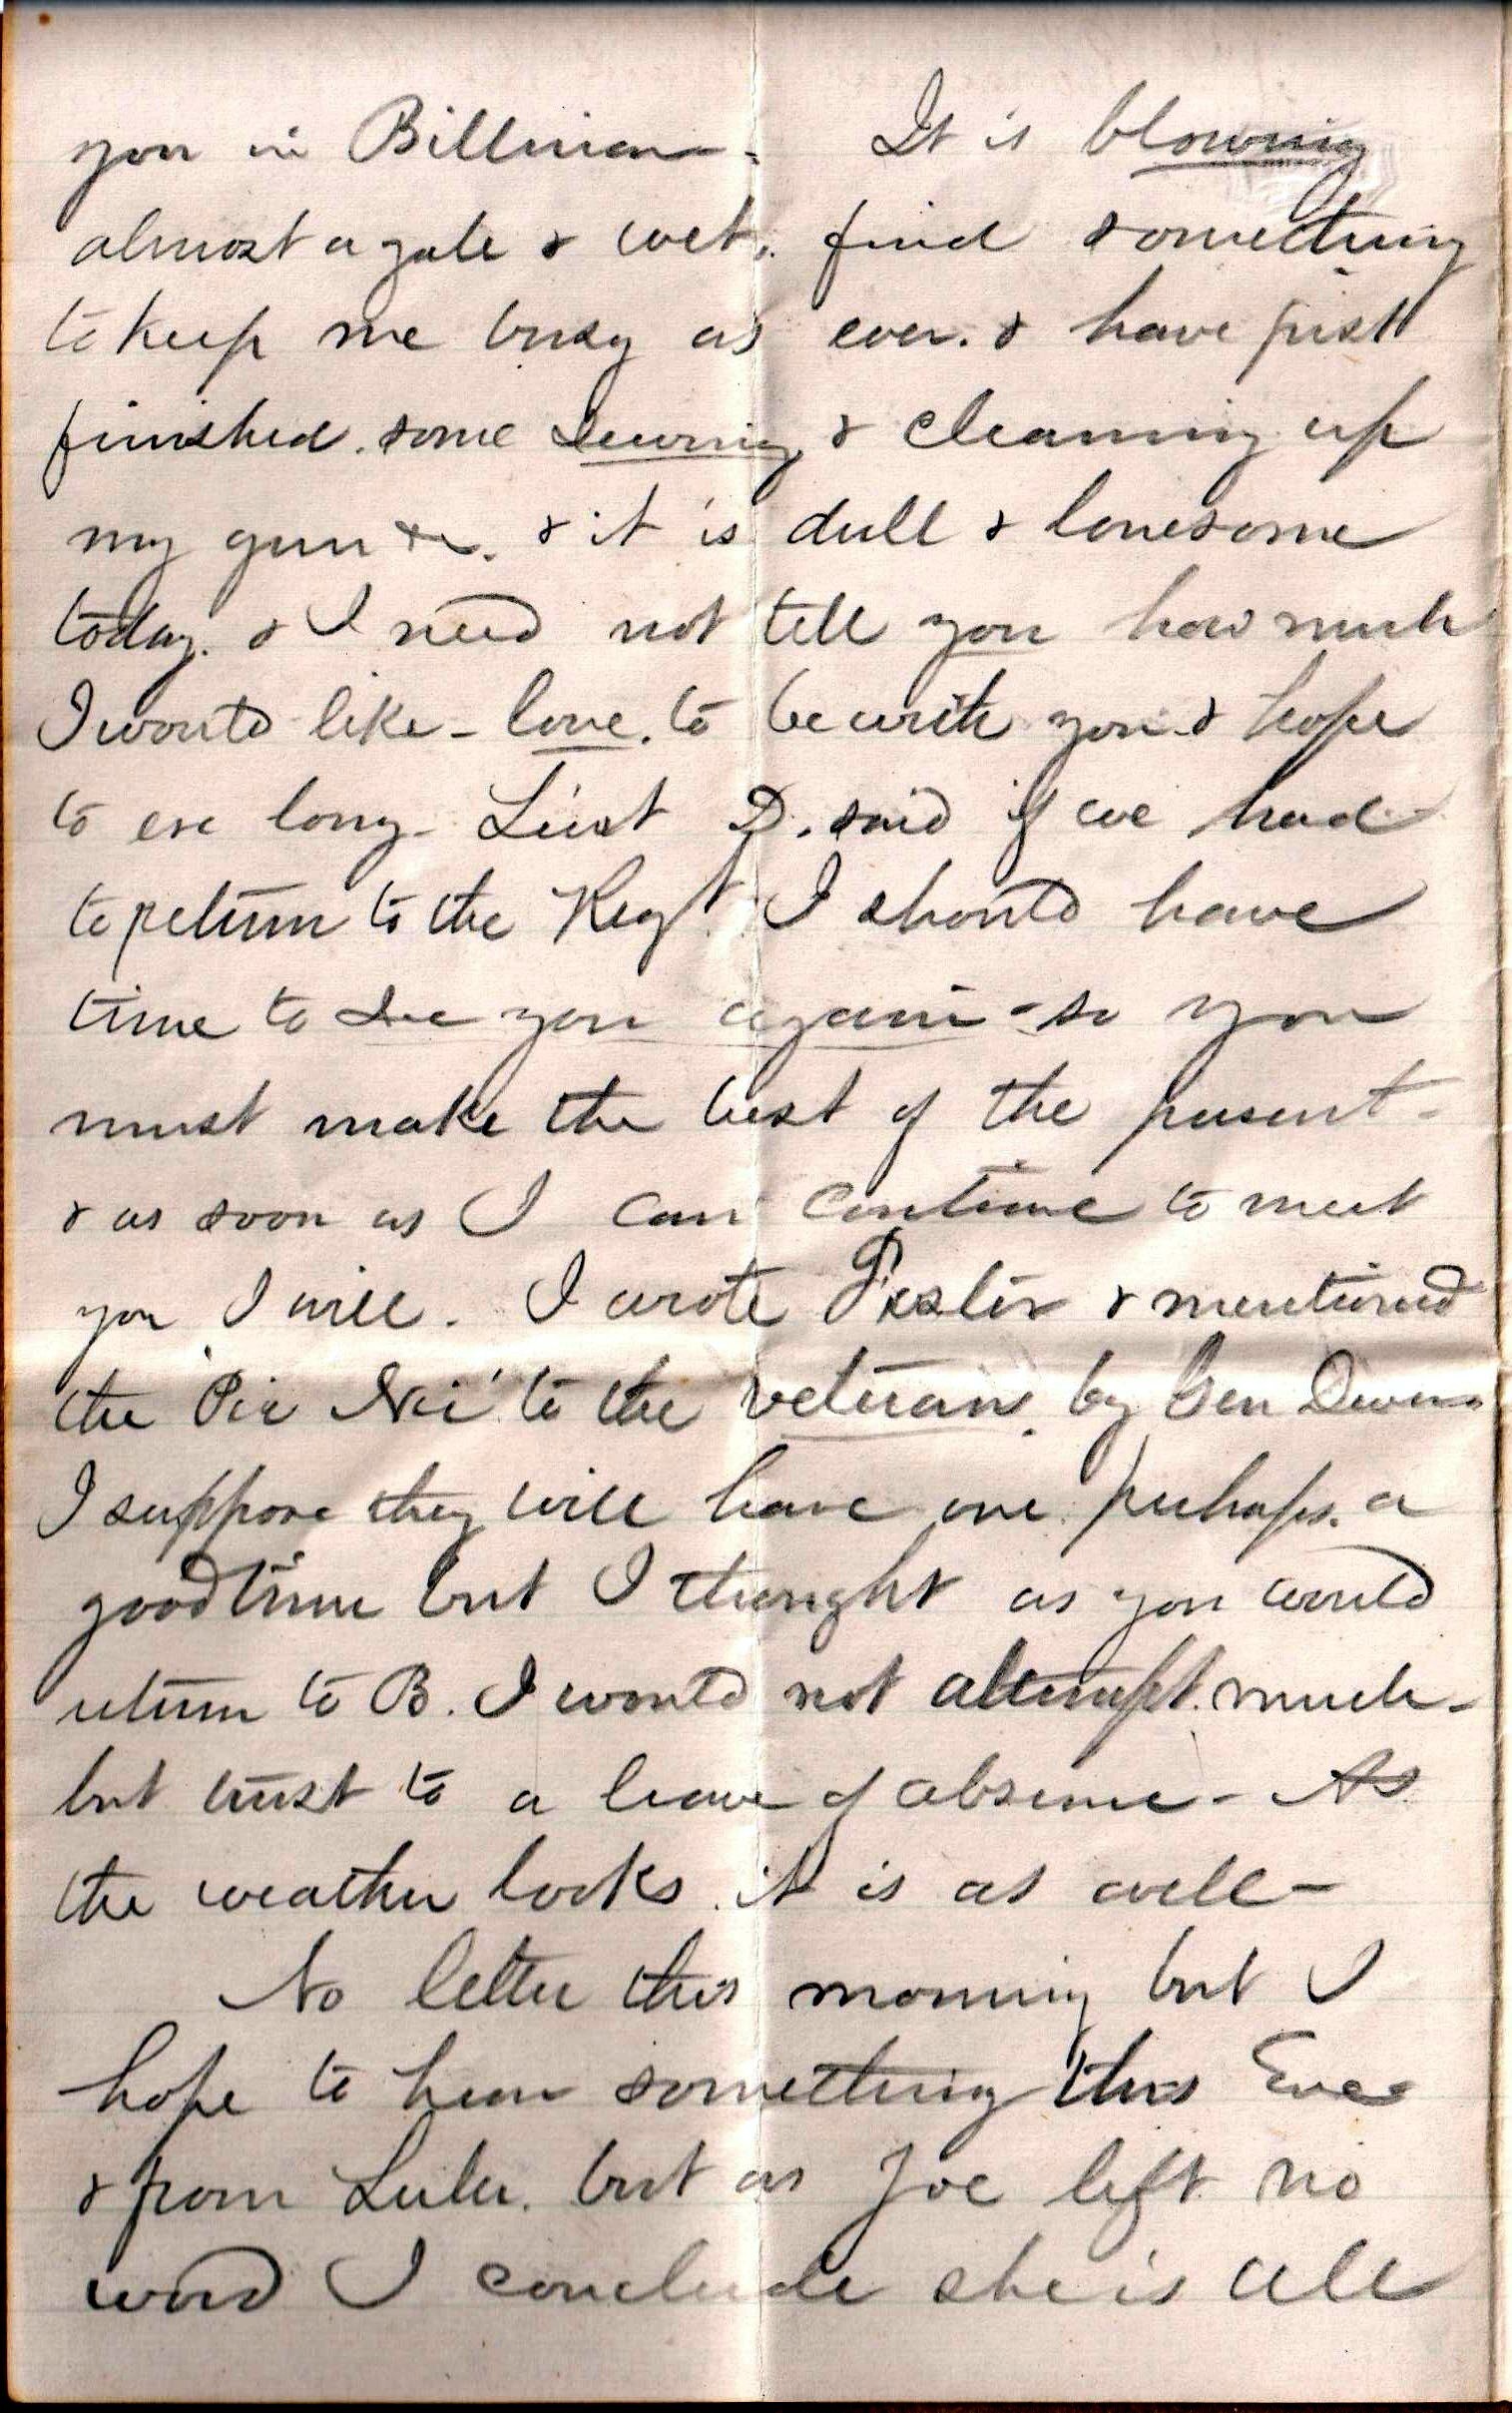 you in Billerica - It is blowing
almost a gale & wet. find something
to keep me busy as ever. & have just
finished. some sewing & cleaning up
my gun &c. & it is dull & lonesome
today. & I need not tell you how much
I would like - love. to be with you & hope
to ere long - Lieut D. said if we had
to return to the Regt. I should have
time to see you again - so you
must make the best of the present -
& as soon as I can contrive to meet
you I will. I wrote & mentioned
the 'Pic Nic' to the veterans. by Gen Devens
I suppose they will have one perhaps. a
good time but I thought as you would
return to B. I would not attempt. much -
but trust to a leave of absence - As
the weather looks. it is as well -
No letter this morning but I
hope to hear something this Eve
& from Lulu. but as Joe left no
word I conclude she is all